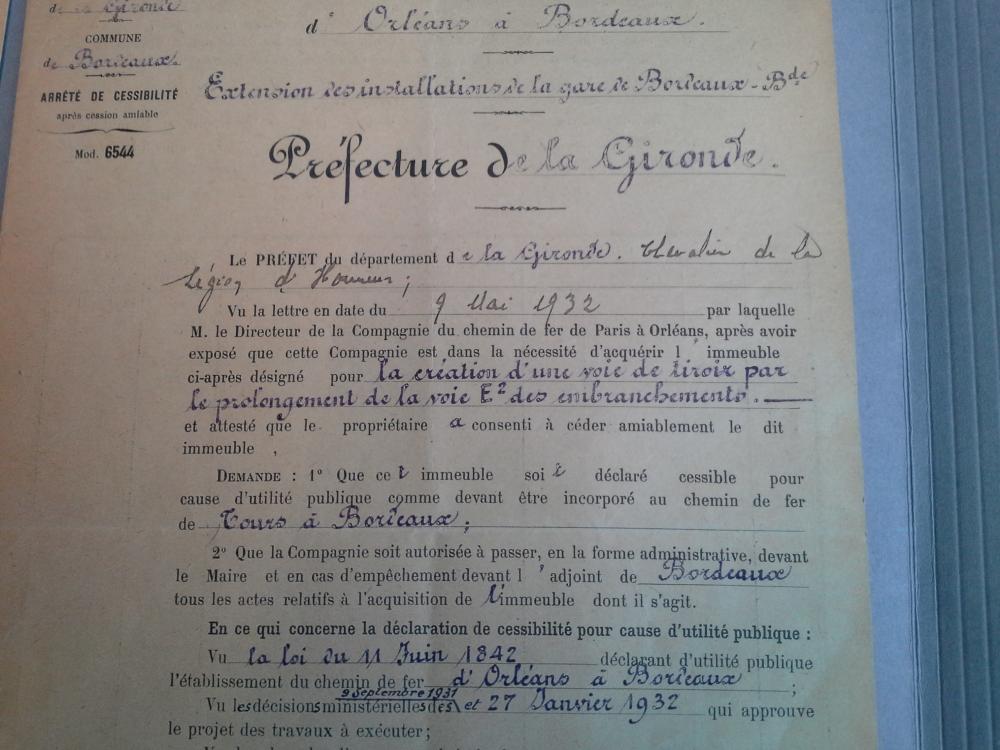 de la Gironde
COMMUNE
de Bordeaux.
ARRÊTÉ DE CESSIBILITÉ
après cession amiable
Mod. 6544
d' Orléans à Bordeaux.
Extension des installations de la gare de Bordeaux-Bde
Préfecture de la Gironde.
Le PRÉFET du département de la Gironde. Chevalier de la
Légion d'Honneur;
Vu la lettre en date du 9 Mai 1932 par laquelle
M. le Directeur de la Compagnie du chemin de fer de Paris à Orléans, après avoir
exposé que cette Compagnie est dans la nécessité d'acquérir l' immeuble
ci-après désigné pour la création d'une voie de tiroir par
le prolongement de la voie E² des embranchements.
et attesté que le propriétaire a consenti à céder amiablement le dit
immeuble ,
DEMANDE : 1° Que cet immeuble soit déclaré cessible pour
cause d'utilité publique comme devant être incorporé au chemin de fer
de Tours à Bordeaux;
2° Que la Compagnie soit autorisée à passer, en la forme administrative, devant
le Maire et en cas d'empêchement devant l'adjoint de Bordeaux
tous les actes relatifs à l'acquisition de l'immeuble dont il s'agit.
En ce qui concerne la déclaration de cessibilité pour cause d'utilité publique :
Vu la loi du 11 Juin 1842 déclarant d'utilité publique
l'établissement du chemin de fer d'Orléans à Bordeaux ;
9 Septembre 1931
Vu les décisions ministérielles des et 27 Janvier 1932 qui approuve
le projet des travaux à exécuter;